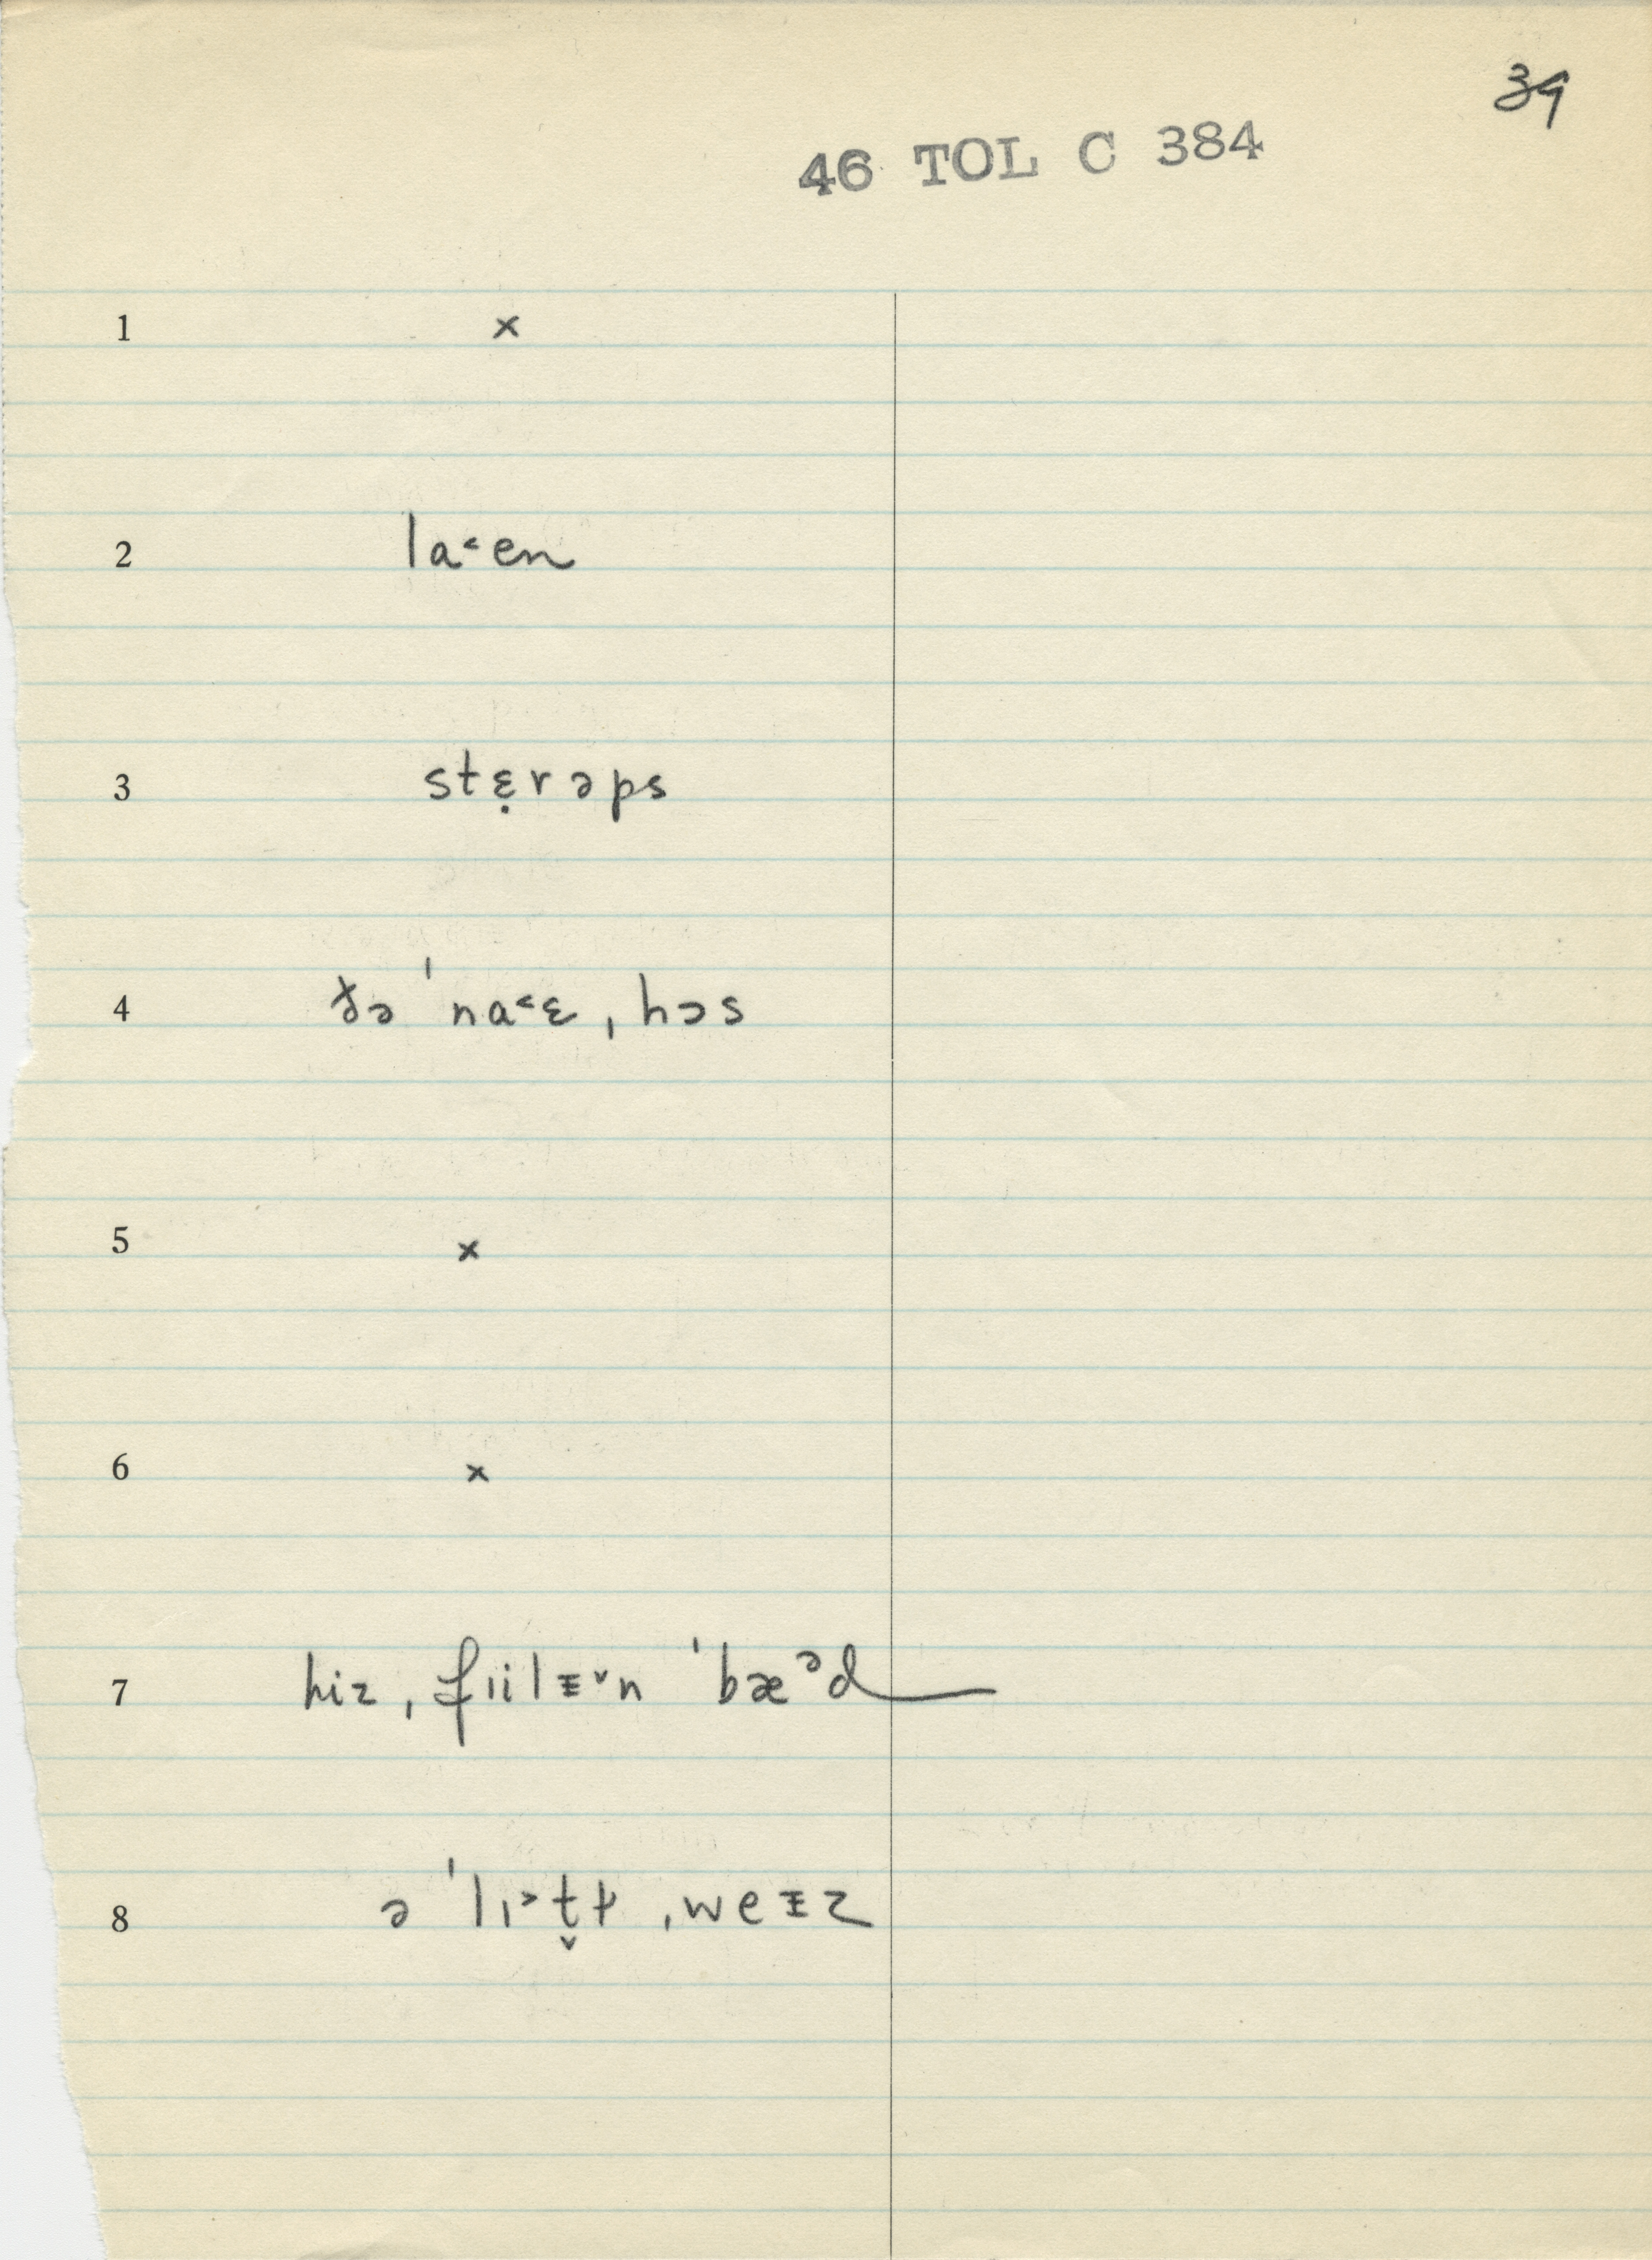 39
46 TOL C 384
1 ×
2 la˂en
3 stɛ̣rəps
4 ðə ˈna˂ɛ ˌhɔs
5 ×
6 ×
7 hiz ˌfɪilᵻ˅n ˈbæᵊd
8 ə ˈlɪ˃t̬ɫ ˌweᵻz